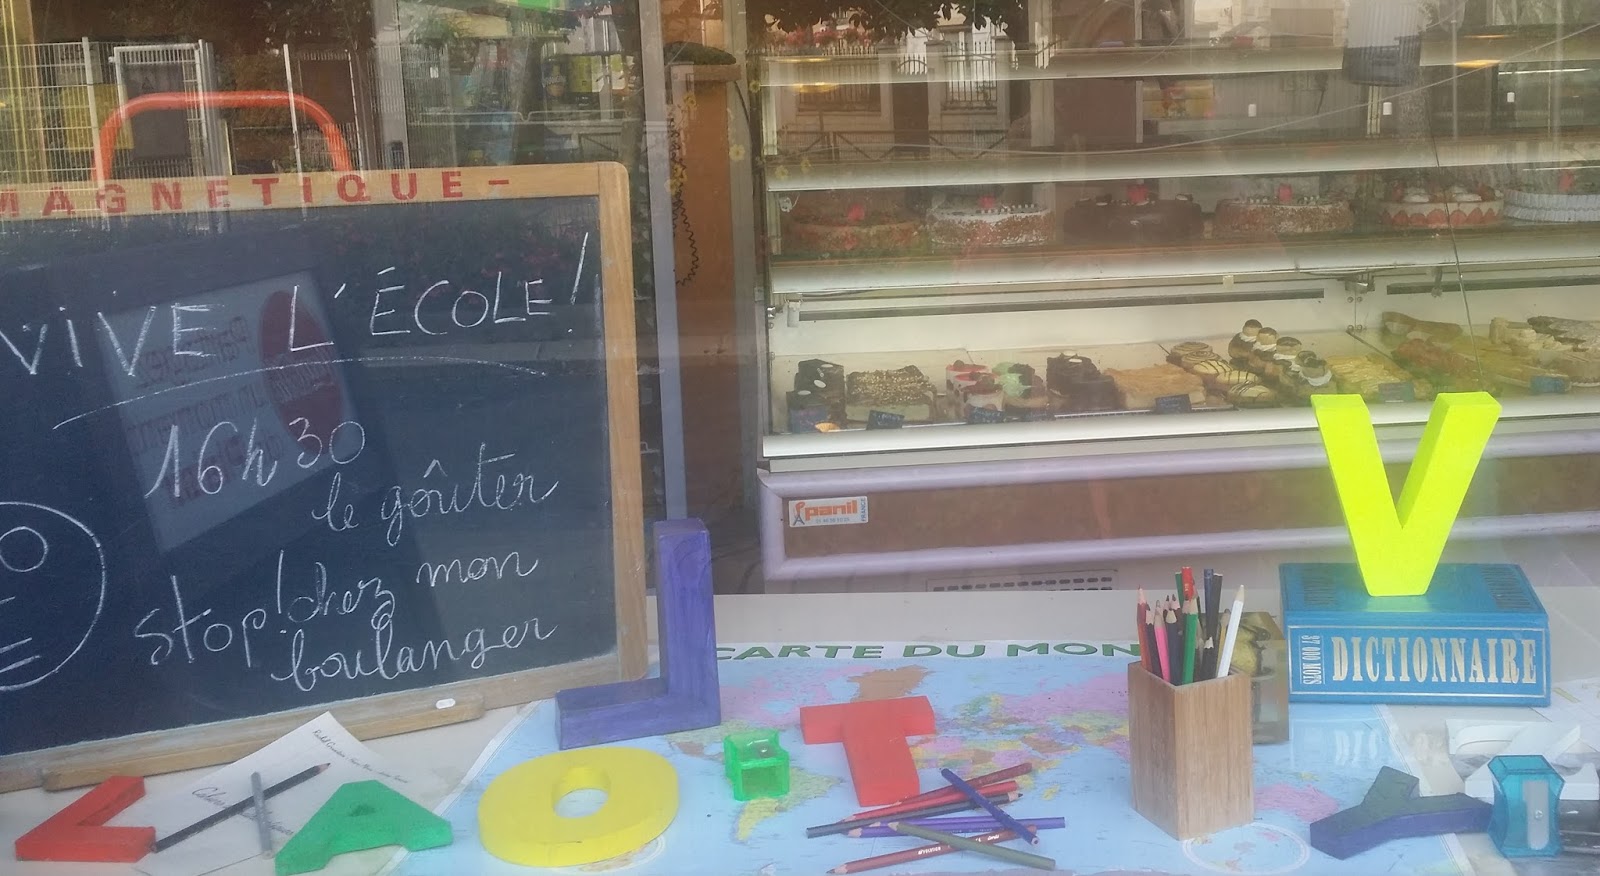 MAGNETIQUE-
VIVE L'ÉCOLE!
16h30
le goûter
stop! chez mon
boulanger
panil
FRANCE
CARTE DU MON
DICTIONNAIRE
37 000 MOTS
V
L
T
L A O
Y